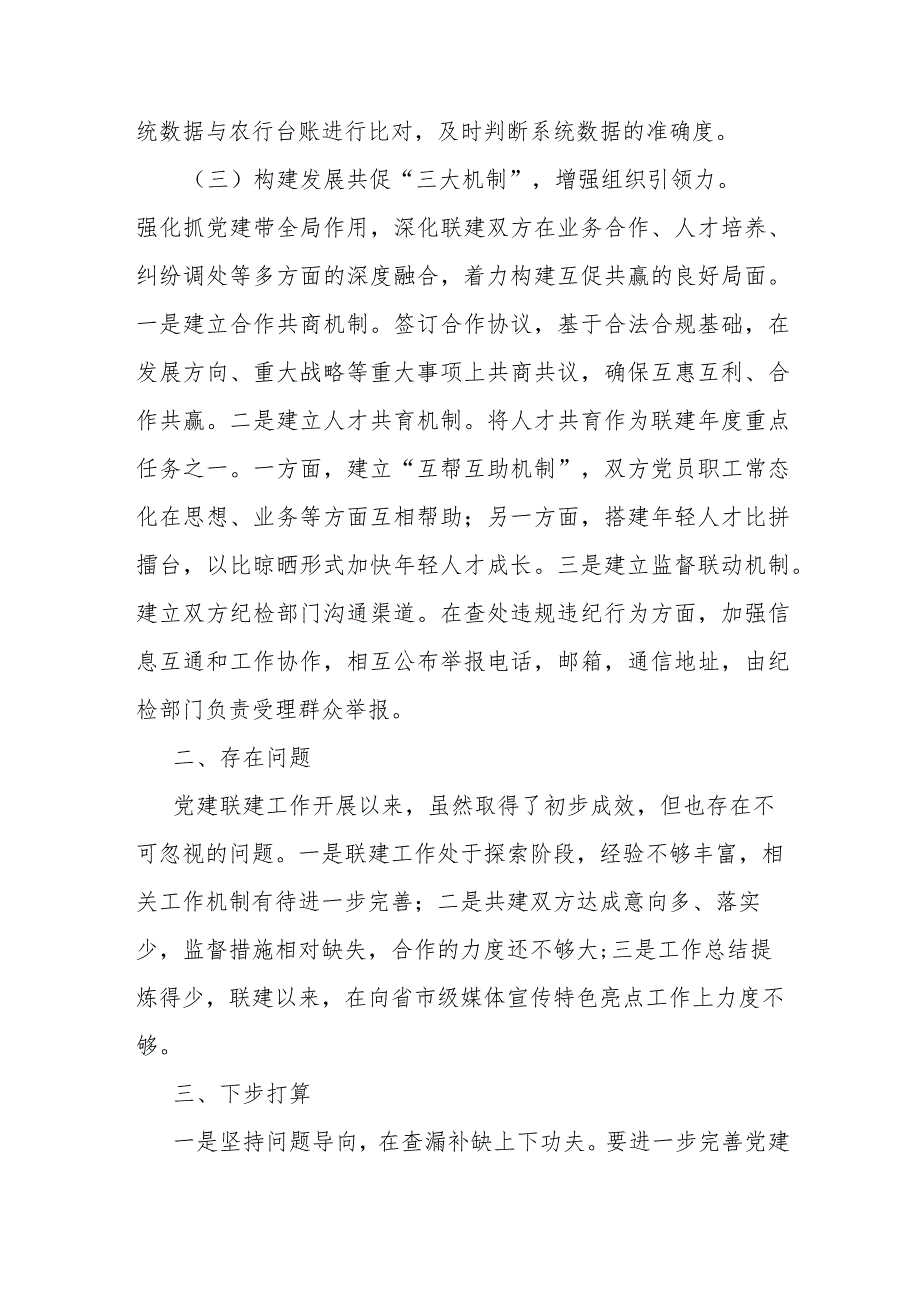 统数据与农行台账进行比对，及时判断系统数据的准确度。
（三）构建发展共促“三大机制”，增强组织引领力。
强化抓党建带全局作用，深化联建双方在业务合作、人才培养、
纠纷调处等多方面的深度融合，着力构建互促共赢的良好局面。
一是建立合作共商机制。签订合作协议，基于合法合规基础，在
发展方向、重大战略等重大事项上共商共议，确保互惠互利、合
作共赢。二是建立人才共育机制。将人才共育作为联建年度重点
任务之一。一方面，建立“互帮互助机制”，双方党员职工常态
化在思想、业务等方面互相帮助；另一方面，搭建年轻人才比拼
擂台，以比晾晒形式加快年轻人才成长。三是建立监督联动机制。
建立双方纪检部门沟通渠道。在查处违规违纪行为方面，加强信
息互通和工作协作，相互公布举报电话，邮箱，通信地址，由纪
检部门负责受理群众举报。
二、存在问题
党建联建工作开展以来，虽然取得了初步成效，但也存在不
可忽视的问题。一是联建工作处于探索阶段，经验不够丰富，相
关工作机制有待进一步完善；二是共建双方达成意向多、落实
少，监督措施相对缺失，合作的力度还不够大;三是工作总结提
炼得少，联建以来，在向省市级媒体宣传特色亮点工作上力度不
够。
三、下步打算
一是坚持问题导向，在查漏补缺上下功夫。要进一步完善党建